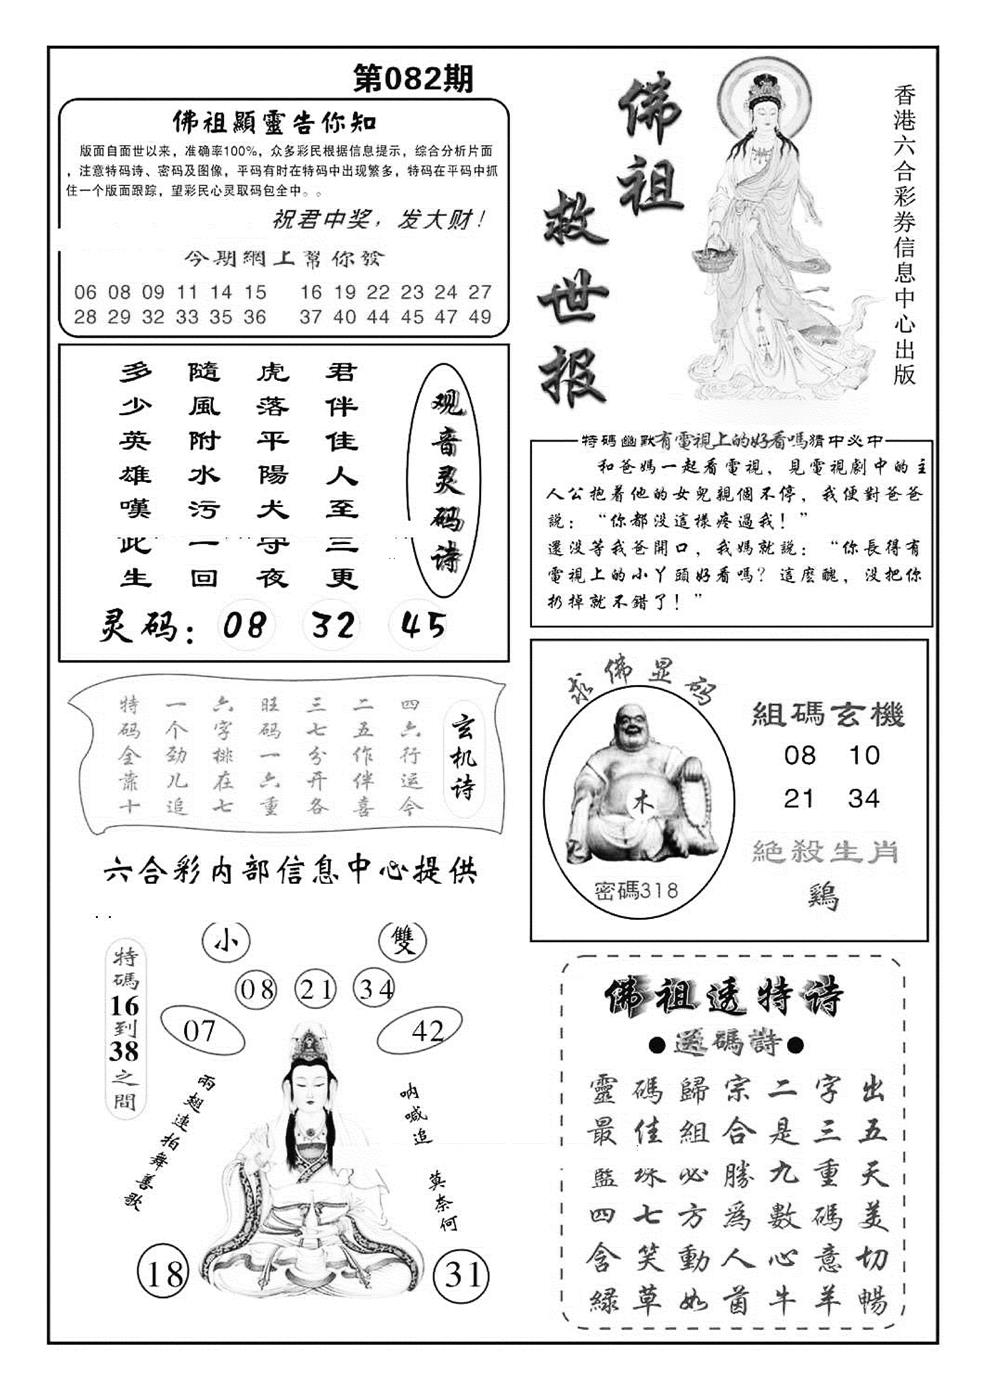 第082期
佛祖顯靈告你知
版面自面世以来，准确率100%，众多彩民根据信息提示，综合分析片面
，注意特码诗、密码及图像，平码有时在特码中出现繁多，特码在平码中抓
住一个版面跟踪，望彩民心灵取码包全中。。
祝君中奖，发大财！
今期網上幫你發
06 08 09 11 14 15 16 19 22 23 24 27
28 29 32 33 35 36 37 40 44 45 47 49
佛祖
救世报
香港六合彩券信息中心出版
观音灵码诗
君伴佳人至三更
虎落平陽犬守夜
隨風附水污一回
多少英雄嘆此生
灵码：08 32 45
特碼幽默有電視上的好看嗎猜中必中
和爸媽一起看電視，見電視劇中的主
人公抱着他的女兒親個不停，我便對爸爸
説：“你都没這樣疼過我！”
還没等我爸開口，我媽就説：“你長得有
電視上的小丫頭好看嗎？這麽醜，没把你
扔掉就不錯了！”
玄机诗
四六行运今
二五作伴喜
三七分开各
旺码一六重
六字排在七
一个劲儿追
特码全靠十
六合彩内部信息中心提供
求佛显码
木
密碼318
組碼玄機
08 10
21 34
絕殺生肖
鷄
小
雙
08 21 34
07
42
特碼16到38之間
雨翅連拍舞善歌
呐喊追 莫奈何
18
31
佛祖透特诗
●送碼詩●
靈碼歸宗二字出
最佳組合是三五
藍珠必勝九重天
四七方爲數碼美
含笑動人心意切
緑草如茵牛羊暢